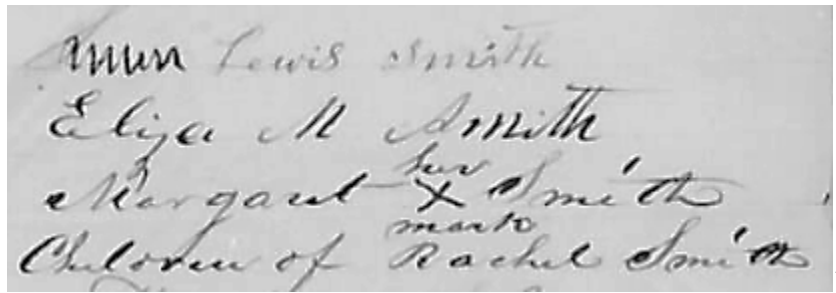 Lewis Smith
Eliza M Smith
Margaret her X mark Smith
Children of Rachel Smith